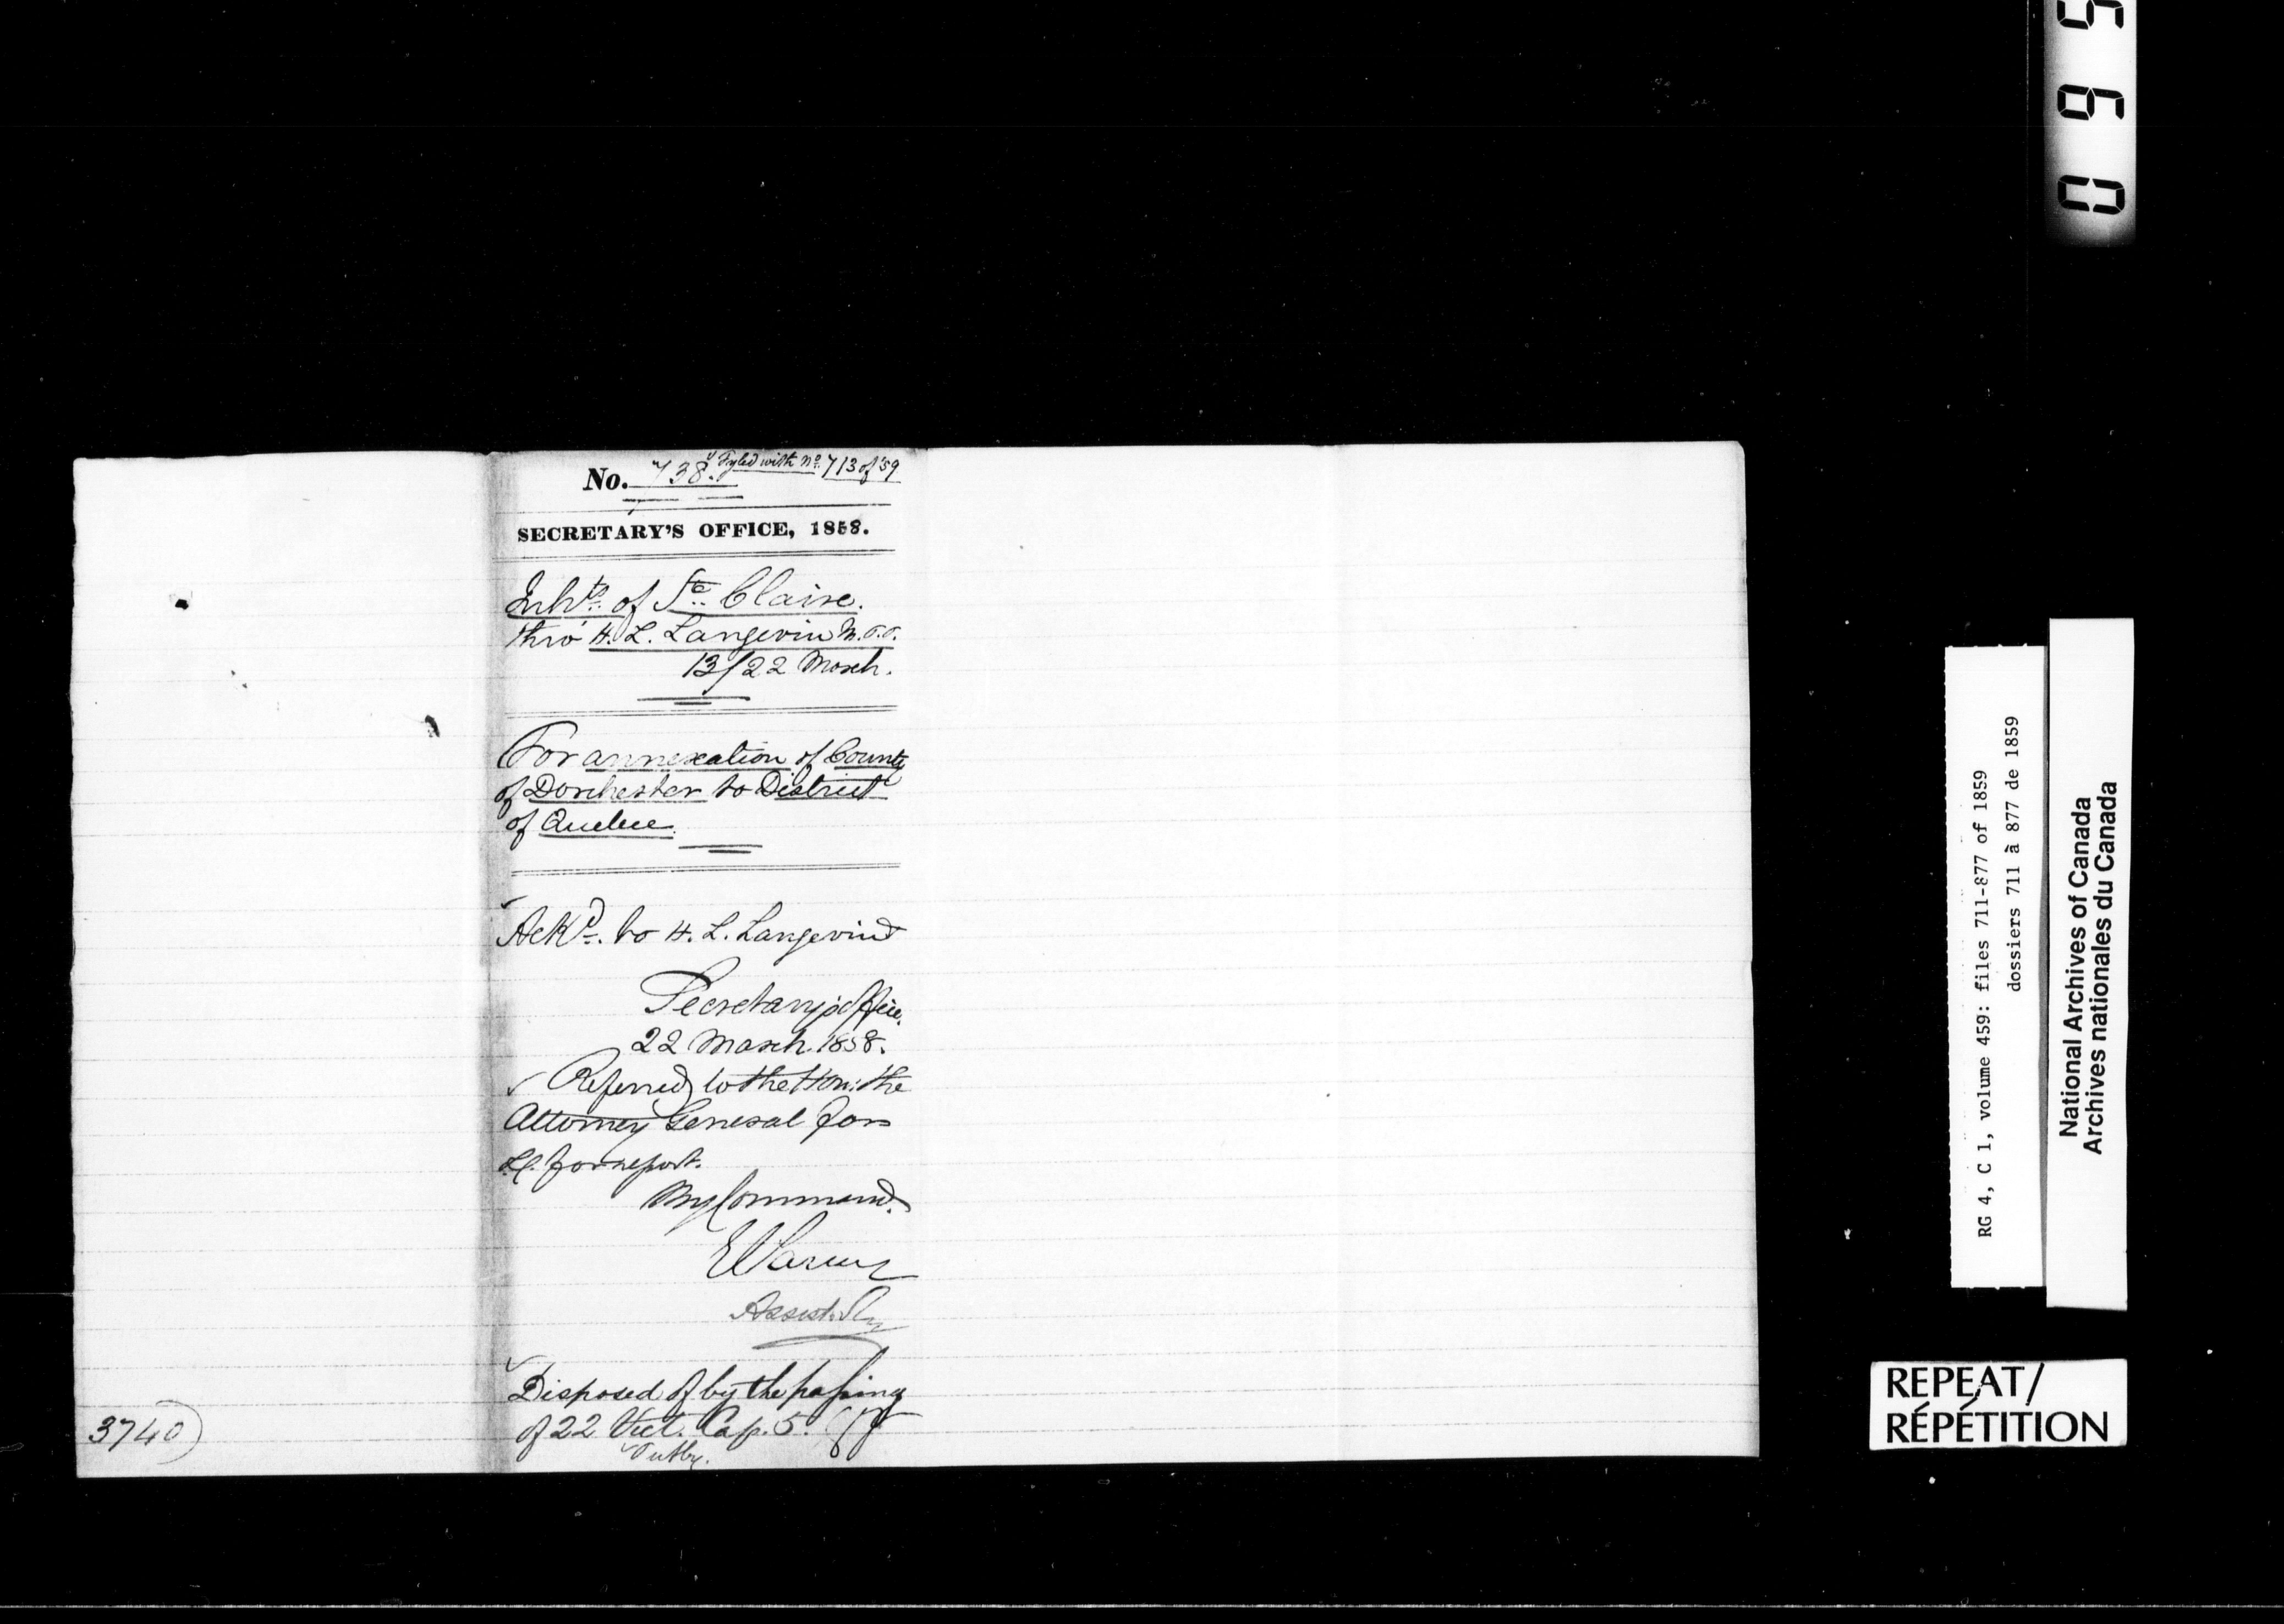 No. 738. Fyled with No. 713 of '59
SECRETARY'S OFFICE, 1858.
Inhts. of Ste. Claire.
thro' H. L. Langevin M.P.P.
13/22 March.
For annexation of County
of Dorchester to District
of Quebec.
Ackd. to H. L. Langevin
Secretary's Office.
22 March 1858.
Referred to the Hon: the
Attorney General for
L.C. for report.
By Command.
E Parent
Assist. Secy
Disposed of by the passing
of 22 Vict. Cap. 5.
Putby.
3740
0695
RG 4, C 1, volume 459: files 711-877 of 1859
dossiers 711 à 877 de 1859
National Archives of Canada
Archives nationales du Canada
REPEAT/
RÉPÉTITION